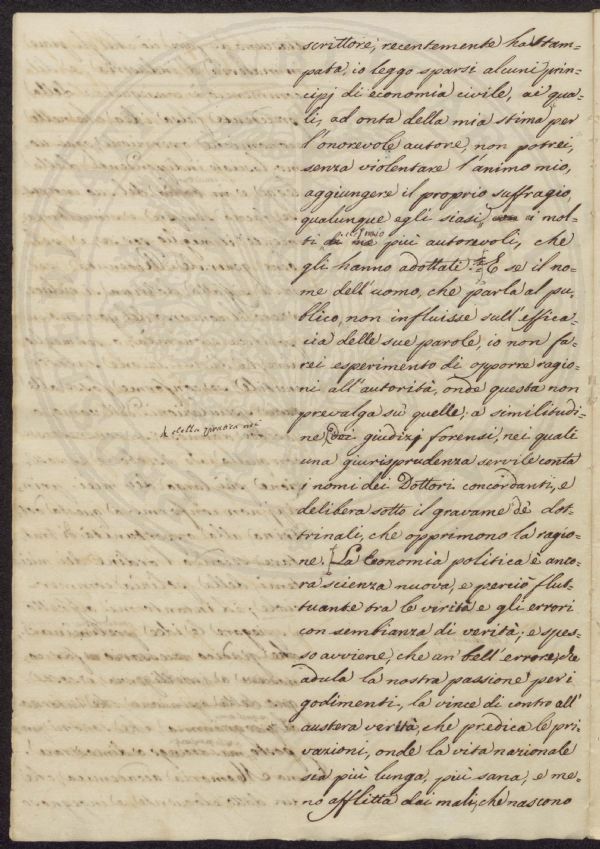 scrittore, recentemente ha stam-
pata, io leggo sparsi alcuni prin-
cipj di economia civile, ai qua-
li, ad onta della mia stima per
l'onorevole autore, non potrei,
senza violentare l'animo mio,
aggiungere il proprio suffragio,
qualunque egli siasi, i mol-
ti del mio
di me più autorevoli, che
gli hanno adottati. E se il no-
me dell'uomo, che parla al pu,
blico, non influisse sull'effica-
cia delle sue parole, io non fa-
rei esperimento di opporre ragio-
ni all'autorità, onde questa non
prevalga su quelle; a similitudi-
della pratica nei
ne Dei giudizj forensi, nei quali
una giurisprudenza servile conta
i nomi dei Dottori concordanti, e
delibera sotto il gravame de' dot-
trinali, che opprimono la ragio-
ne. La Economia politica è anco-
ra scienza nuova, e perciò flut-
tuante tra le verità e gli errori
con sembianza di verità; e spes-
so avviene, che un bell'errore, che
adula la nostra passione per i
godimenti, la vince di contro all'
austera verità, che predica le pri-
vazioni, onde la vita nazionale
sia più lunga, più sana, e me-
no afflitta dai mali, che nascono